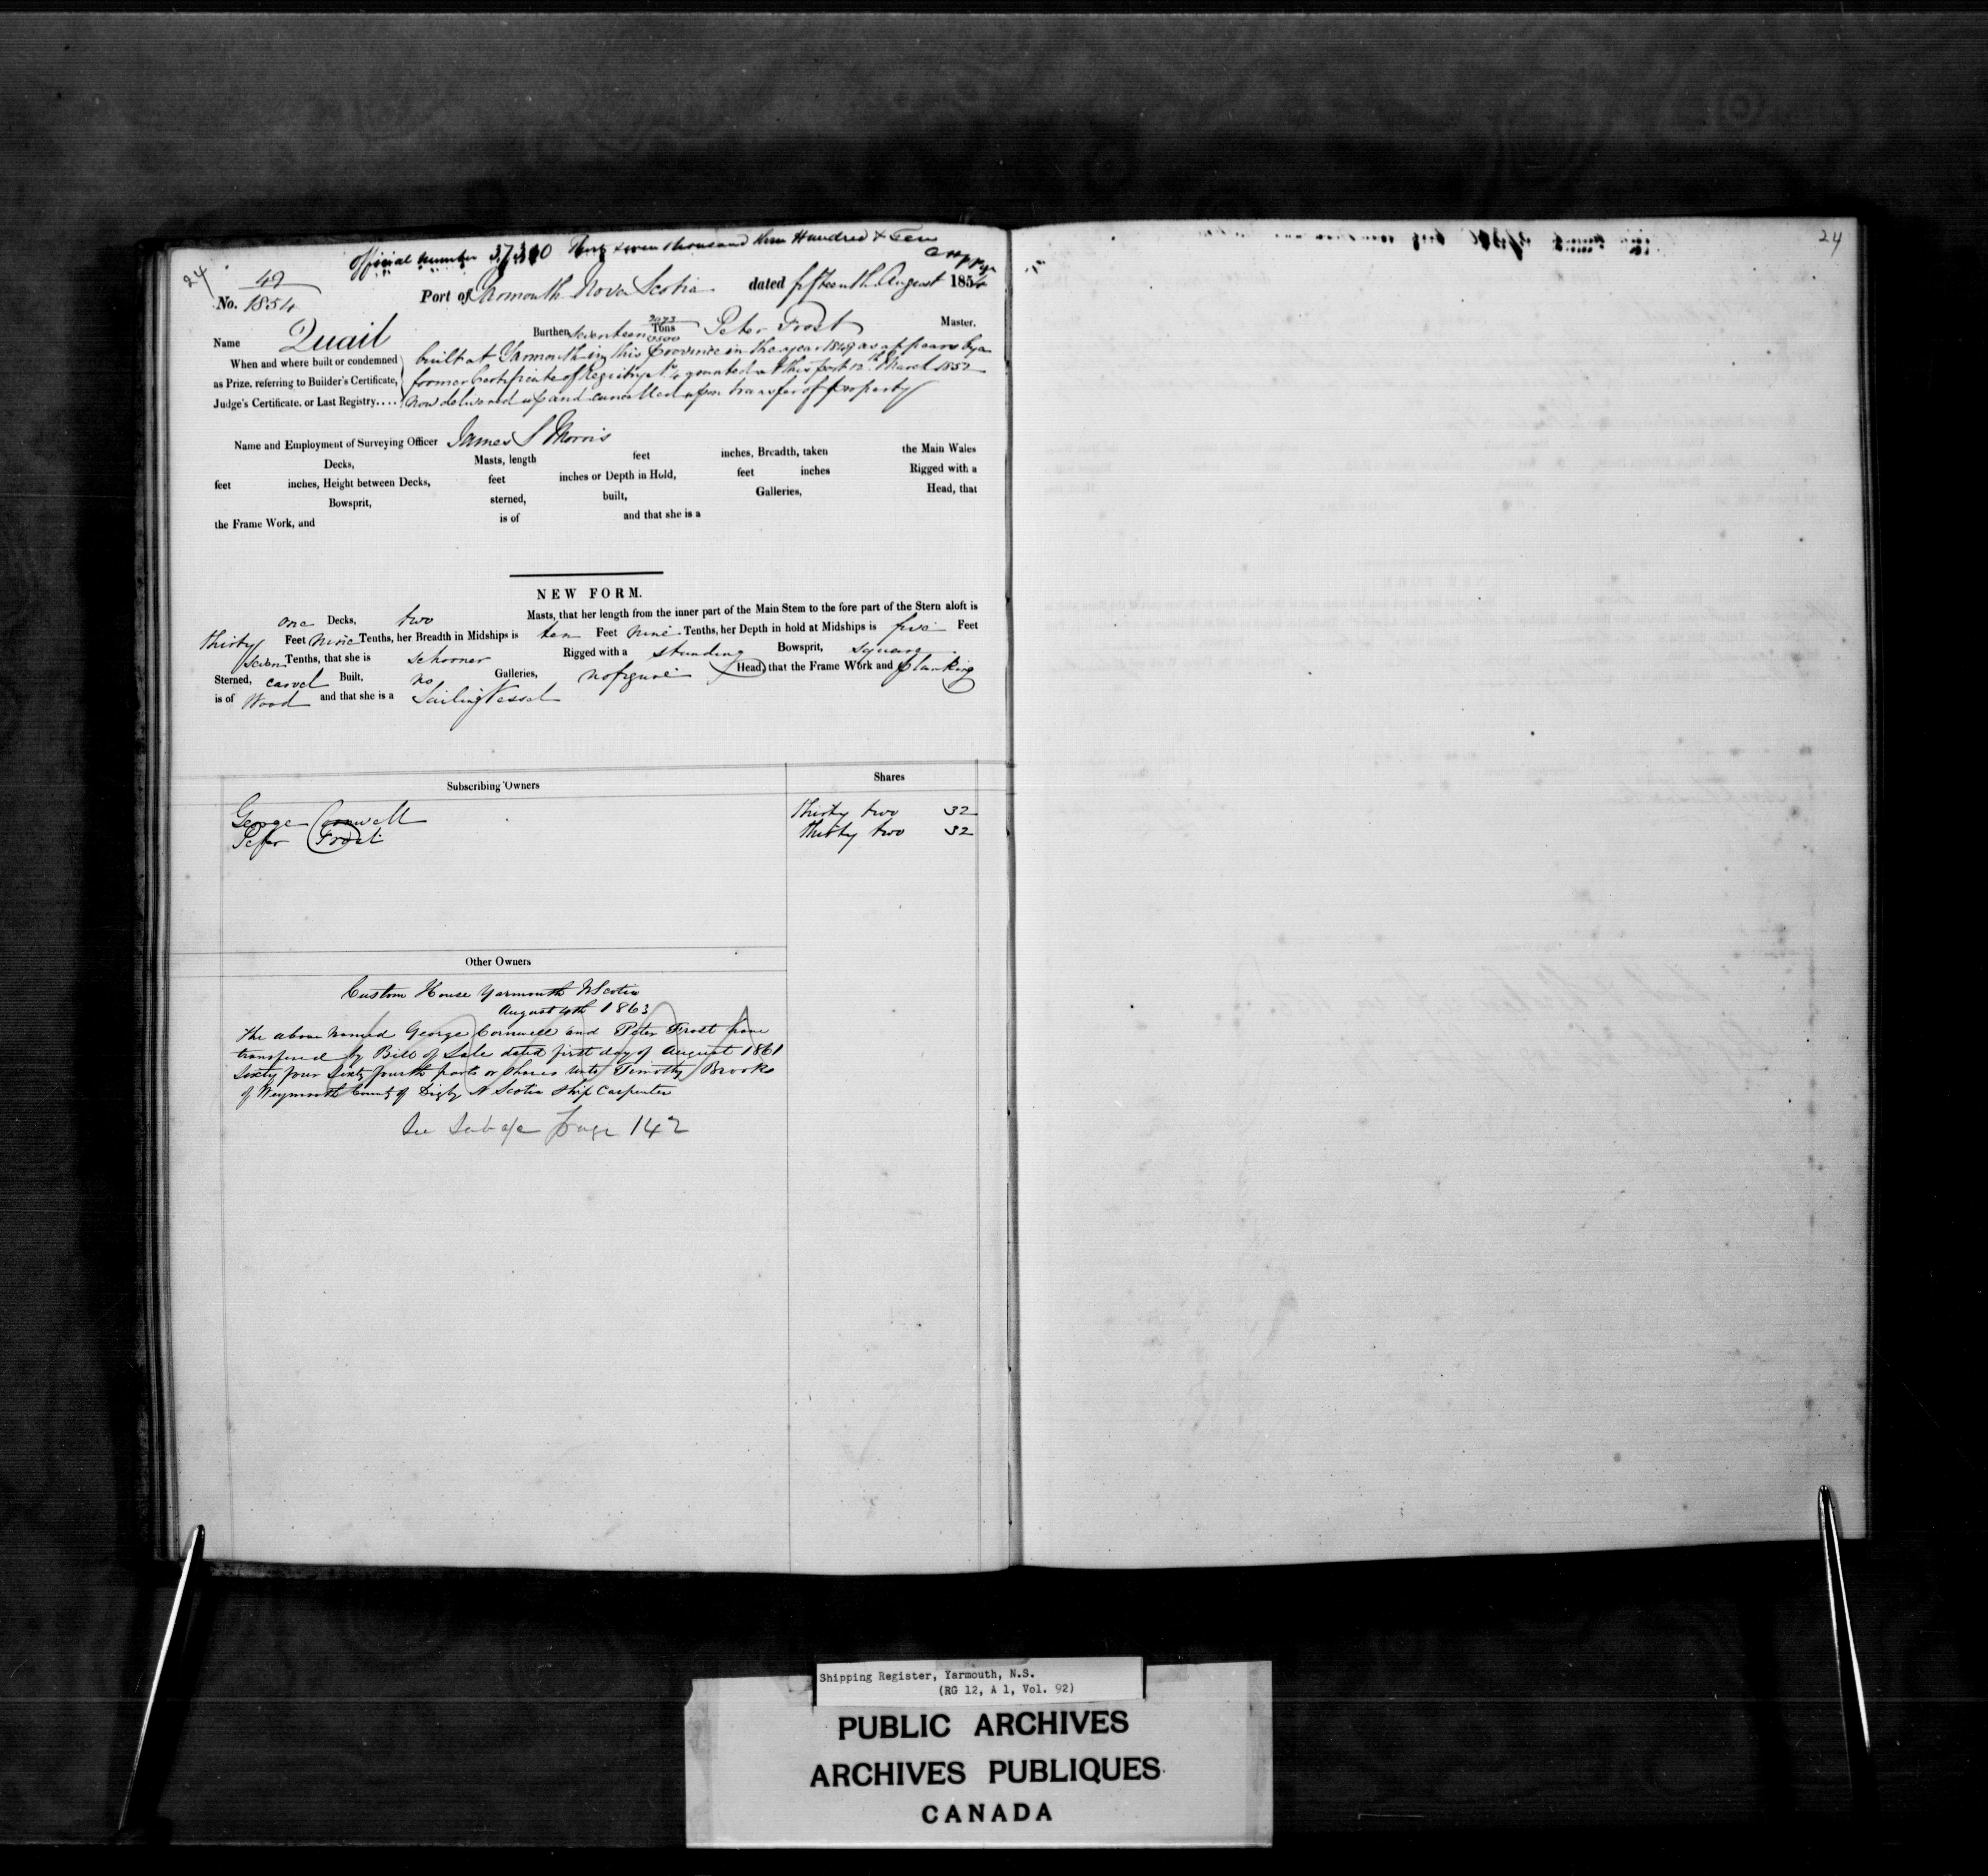 24
Official number 37,310 Thirty seven thousand three Hundred & Ten
No. 42 1854
Port of Yarmouth Nova Scotia dated fifteenth August 1854
Name Quail Burthen Seventeen 2073/3500 Tons Peter Frost Master.
When and where built or condemned as Prize, referring to Builder's Certificate, Judge's Certificate. or Last Registry....
built at Yarmouth in this Province in the year 1849 as appears by a
former Certificate of Registry No 4 granted at this port 12th March 1852
now delivered up and cancelled upon transfer of property
Name and Employment of Surveying Officer James S Morris
Decks, Masts, length feet inches, Breadth, taken the Main Wales
feet inches, Height between Decks, feet inches or Depth in Hold, feet inches Rigged with a
Bowsprit, sterned, built, Galleries, Head, that
the Frame Work, and is of and that she is a
NEW FORM.
one Decks, two Masts, that her length from the inner part of the Main Stem to the fore part of the Stern aloft is
thirty Feet nine Tenths, her Breadth in Midships is ten Feet nine Tenths, her Depth in hold at Midships is five Feet
seven Tenths, that she is schooner Rigged with a standing Bowsprit, square
Sterned, carvel Built, no Galleries, no figure Head, that the Frame Work and planking
is of Wood and that she is a Sailing Vessel
Subscribing Owners Shares
George Cornwell Thirty two 32
Peter Frost Thirty two 32
Other Owners
Custom House Yarmouth N Scotia
August 4th 1863
The above named George Cornwell and Peter Frost have
transfered by Bill of Sale dated first day of August 1861
Sixty four Sixty fourth parts or Shares unto Timothy Brooks
of Weymouth County of Digby N Scotia Ship Carpenter
See Sub a/c page 142
24
Shipping Register, Yarmouth, N.S.
(RG 12, A 1, Vol. 92)
PUBLIC ARCHIVES
ARCHIVES PUBLIQUES
CANADA